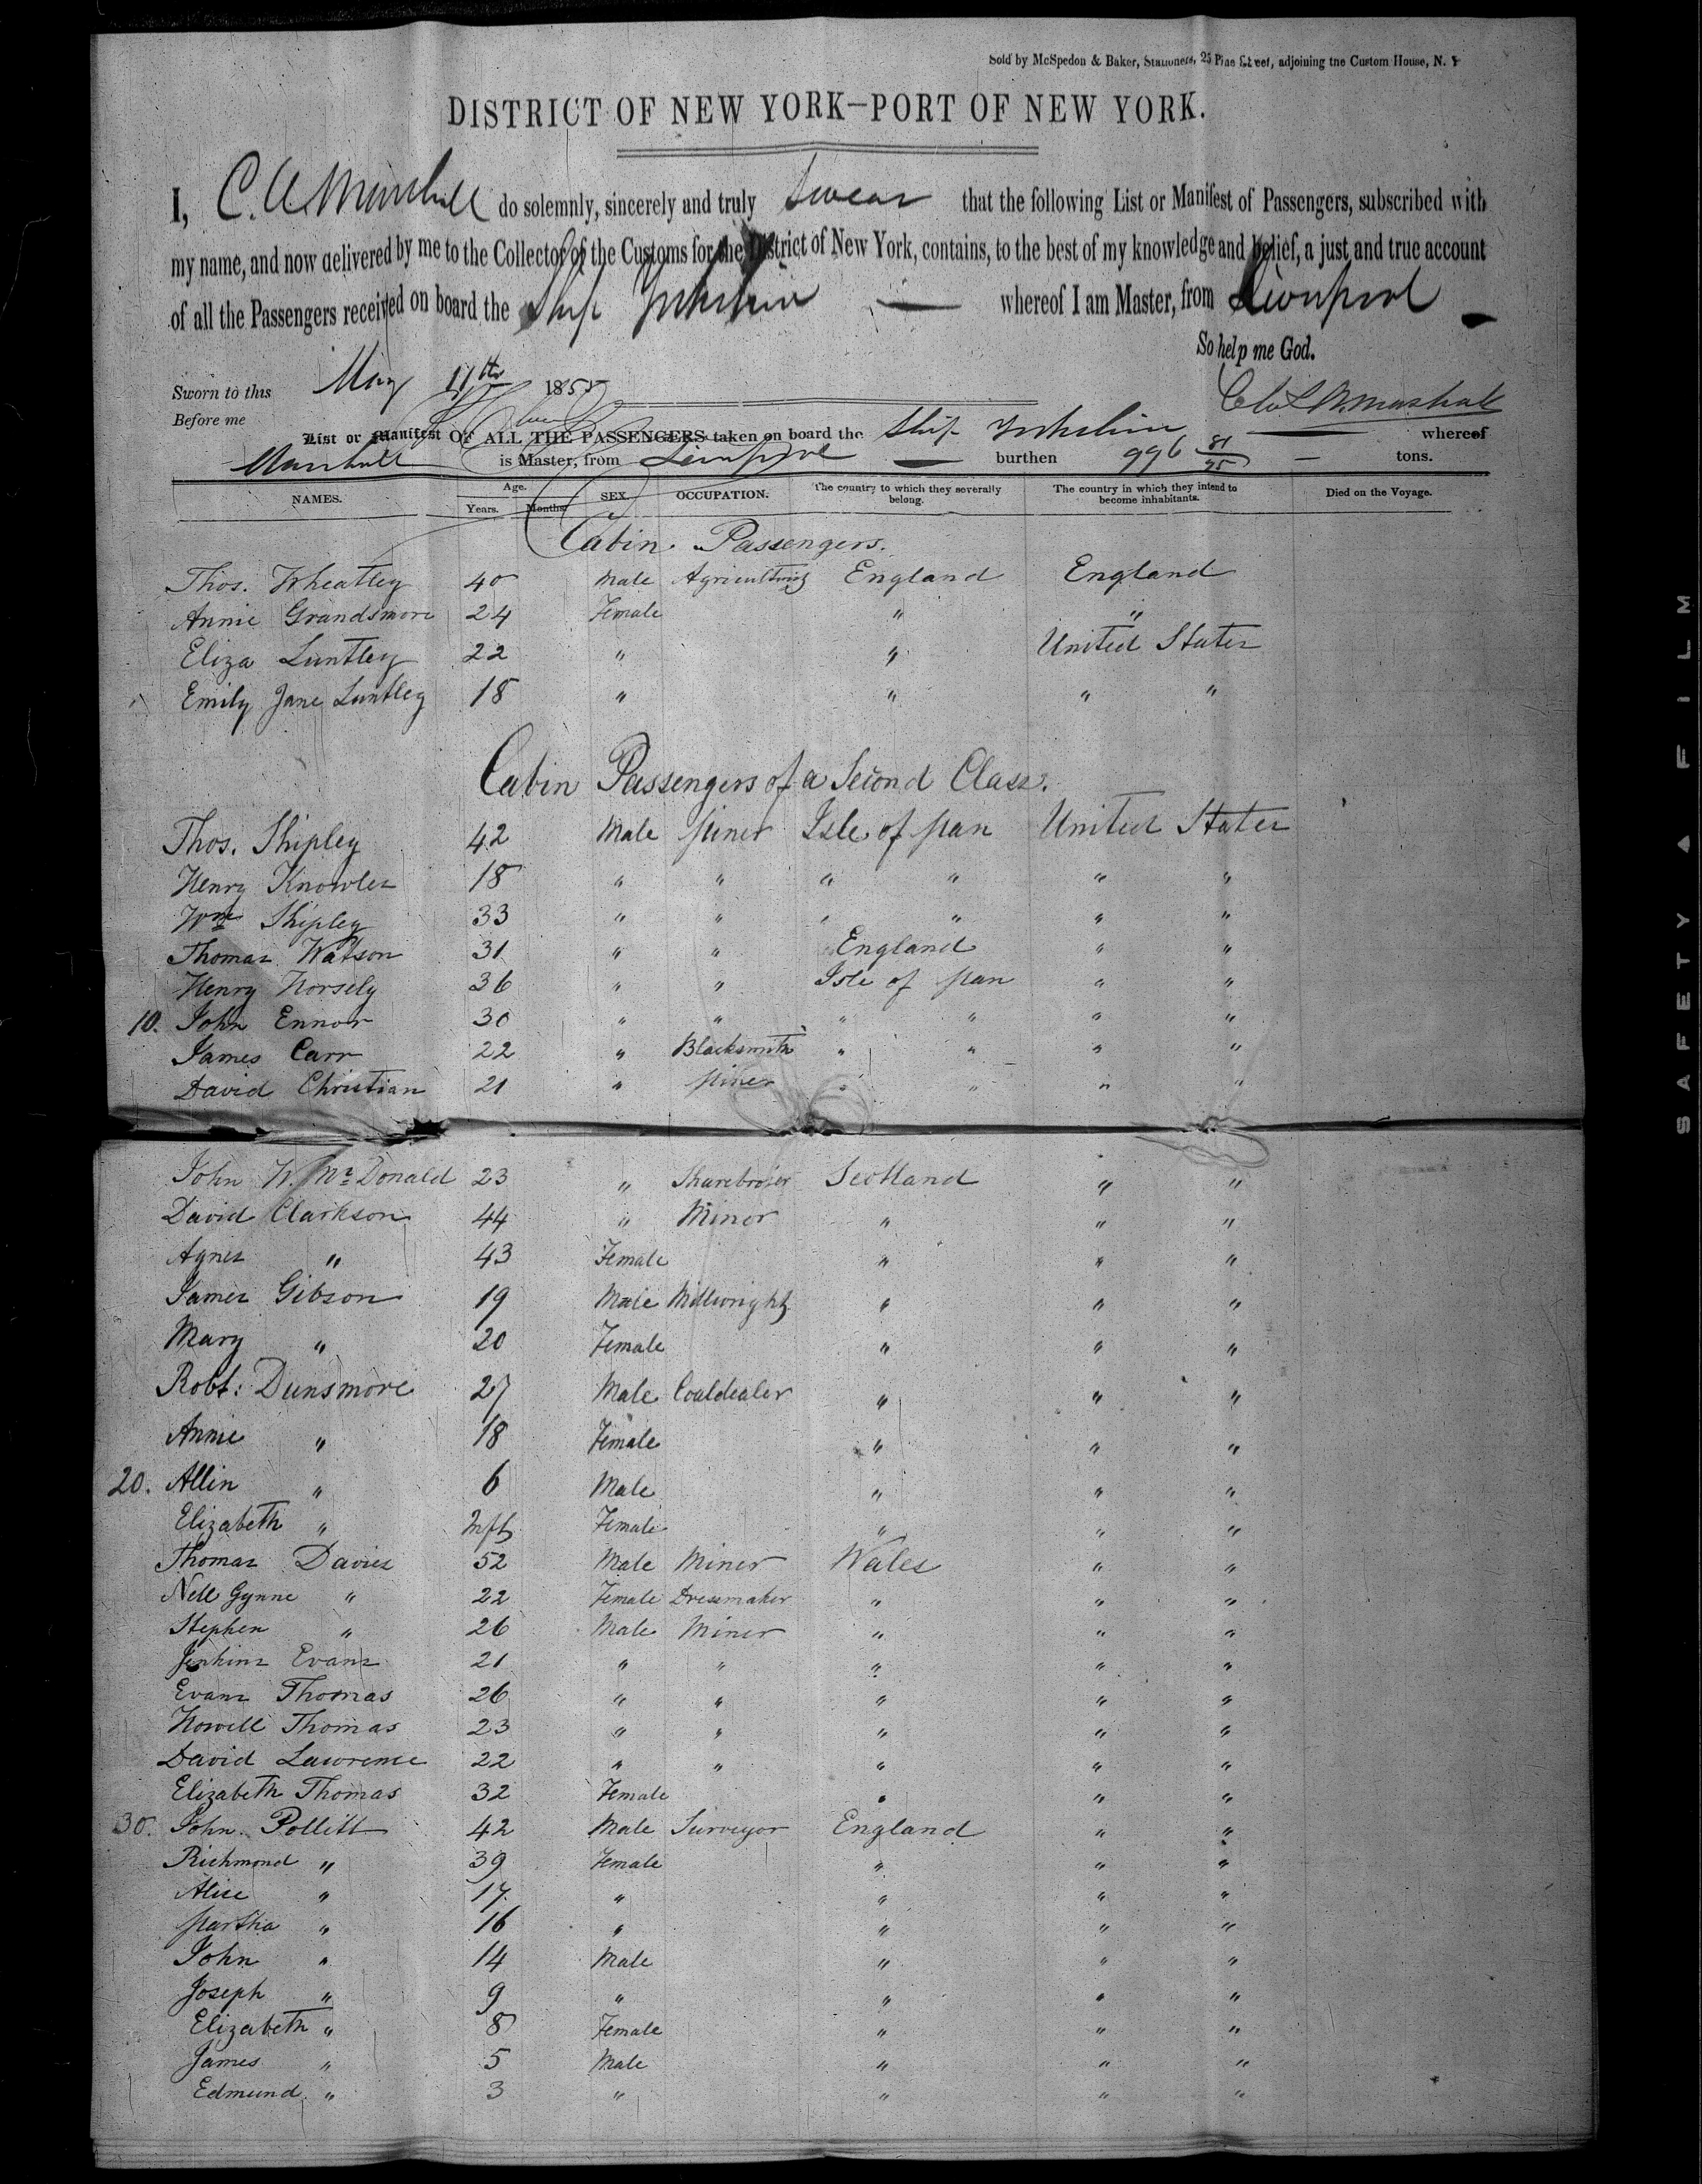 Sold by McSpedon & Baker, Stationers, 25 Pine Street, adjoining the Custom House, N. Y
DISTRICT OF NEW YORK—PORT OF NEW YORK.
I, C. A. Marshall do solemnly, sincerely and truly swear that the following List or Manifest of Passengers, subscribed with
my name, and now delivered by me to the Collector of the Customs for the District of New York, contains, to the best of my knowledge and belief, a just and true account
of all the Passengers received on board the Ship Yorkshire — whereof I am Master, from Liverpool
So help me God.
Sworn to this May 11th 1855
Marshall
Before me
List or Manifest OF ALL THE PASSENGERS taken on board the Ship Yorkshire — whereof
Marshall is Master, from Liverpool — burthen 996 81/95 — tons.
NAMES. Age. Years. Months. SEX. OCCUPATION. The country to which they severally belong. The country in which they intend to become inhabitants. Died on the Voyage.
Cabin Passengers.
Thos. Wheatley 40 Male Agricultury England England
Annie Grandsmore 24 Female " "
Eliza Luntley 22 " " United States
Emily Jane Luntley 18 " " " "
Cabin Passengers of a Second Class.
Thos. Shipley 42 Male Miner Isle of Man United States
Henry Knowles 18 " " " " " "
Wm Shipley 33 " " " " " "
Thomas Watson 31 " " England " "
Henry Horsely 36 " " Isle of Man " "
10. John Ennor 30 " " " " " "
James Carr 22 " Blacksmith " " " "
David Christian 21 " Miner " " " "
John W. Mc Donald 23 " Sharebroker Scotland " "
David Clarkson 44 " Minor " " "
Agnes " 43 Female " " "
James Gibson 19 Male Millwright " " "
Mary " 20 Female " " "
Robt: Dunsmore 27 Male Coaldealer " " "
Annie " 18 Female " " "
20. Allin " 6 Male " " "
Elizabeth " Inft Female " " "
Thomas Davies 52 Male Miner Wales " "
Nell Gynne " 22 Female Dressmaker " " "
Stephen " 26 Male Miner " " "
Jenkins Evans 21 " " " " "
Evans Thomas 26 " " " " "
Howell Thomas 23 " " " " "
David Lawrence 22 " " " " "
Elizabeth Thomas 32 Female " " "
30. John Pollitt 42 Male Surveyor England " "
Richmond " 39 Female " " "
Alice " 17. " " " "
Martha " 16 " " " "
John " 14 Male " " "
Joseph " 9 " " " "
Elizabeth " 8 Female " " "
James " 5 Male " " "
Edmund " 3 " " " "
SAFETY ▲ FILM